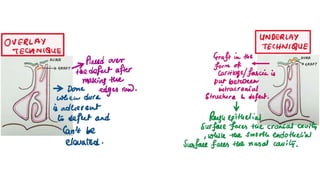 OVERLAY
TECHNIQUE
DURA
GRAFT
Placed over
the defect after
making the
edges raw.
→ Done
when dura
is adherent
to defect and
Can't be
elevated.
UNDERLAY
TECHNIQUE
DURA
GRAFT
Graft in the
form of
Cartilage/fascia is
put between
intracranial
Structure & defect.
Rough epithelial
Surface faces the cranial cavity
, while the smooth endothelial
Surface faces the nasal cavity.